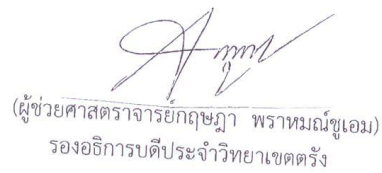 (ผู้ช่วยศาสตราจารย์กฤษฎา พราหมณ์ชูเอม)
รองอธิการบดีประจำวิทยาเขตตรัง